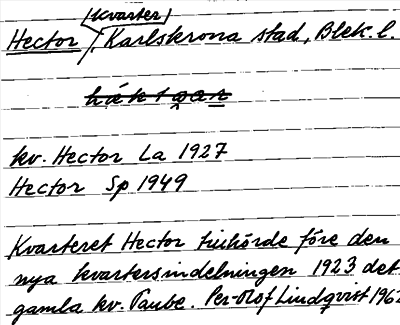 (kvarter)
Hector, Karlskrona stad, Blek. l.
kv. Hector La 1927
Hector Sp 1949
Kvarteret Hector tillhörde före den
nya kvartersindelningen 1923 det
gamla kv. Taube. Per-Olof Lindqvist 196